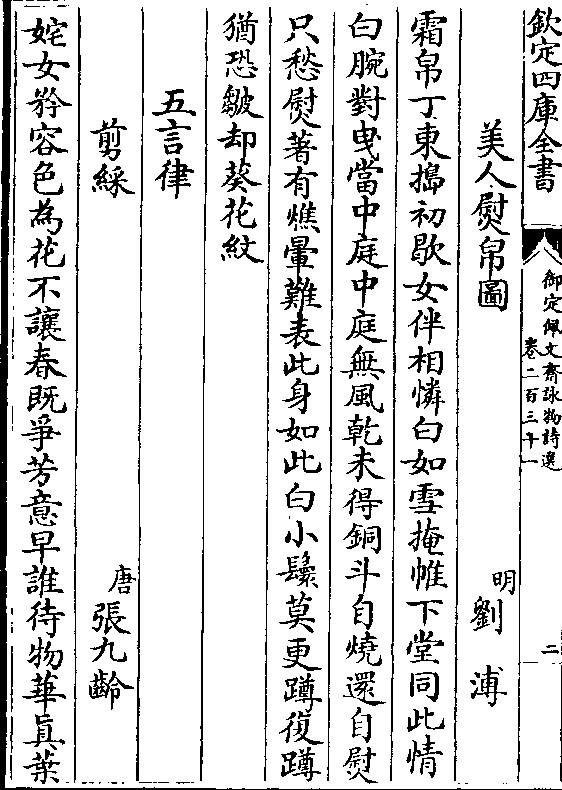 欽定四庫全書
御定佩文齋詠物詩選
卷二百三十一
二
美人熨帛圖
明劉溥
霜帛丁東搗初歇女伴相憐白如雪掩帷下堂同此情
白腕對曵當中庭中庭無風乾未得銅斗自燒還自熨
只愁熨著有燋暈難表此身如此白小鬟莫更蹲復蹲
猶恐皺却葵花紋
五言律
剪綵
唐張九齡
姹女矜容色為花不讓春既爭芳意早誰待物華真葉